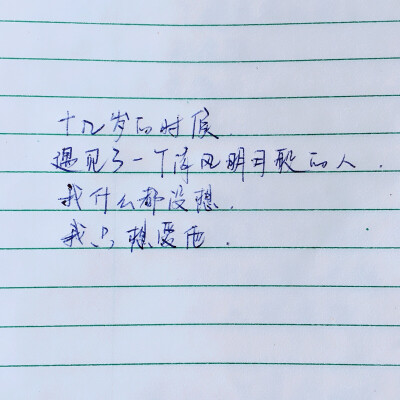 十几岁的时候
遇见了一个清风明月般的人.
我什么都没想.
我只想爱他.